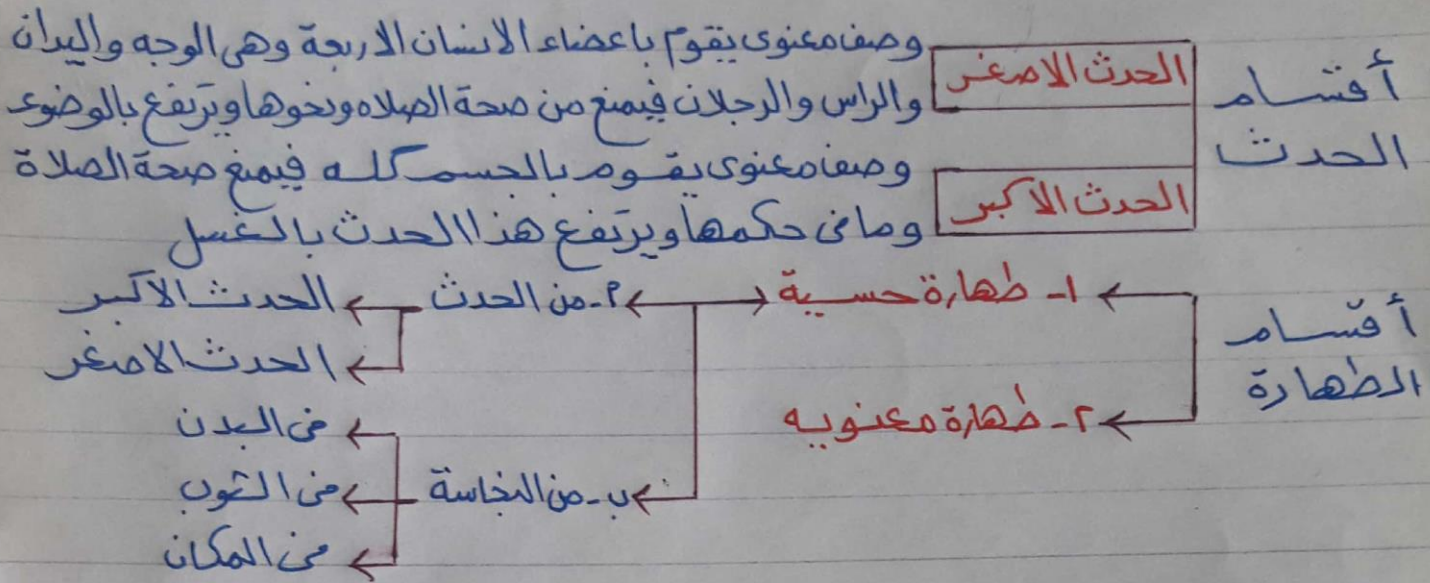 أقسام الحدث
الحدث الاصغر
وصف معنوى يقوم باعضاء الانسان الاربعة وهى الوجه واليدان
والراس والرجلان فيمنع من صحة الصلاه ونحوها ويرتفع بالوضوء
الحدث الاكبر
وصف معنوى يقوم بالجسم كله فيمنع صحة الصلاة
وما فى حكمها ويرتفع هذا الحدث بالغسل
أقسام الطهارة
١- طهارة حسية
أ- من الحدث
الحدث الأكبر
الحدث الاصغر
ب- من النجاسة
فى البدن
فى الثوب
فى المكان
٢- طهارة معنويه